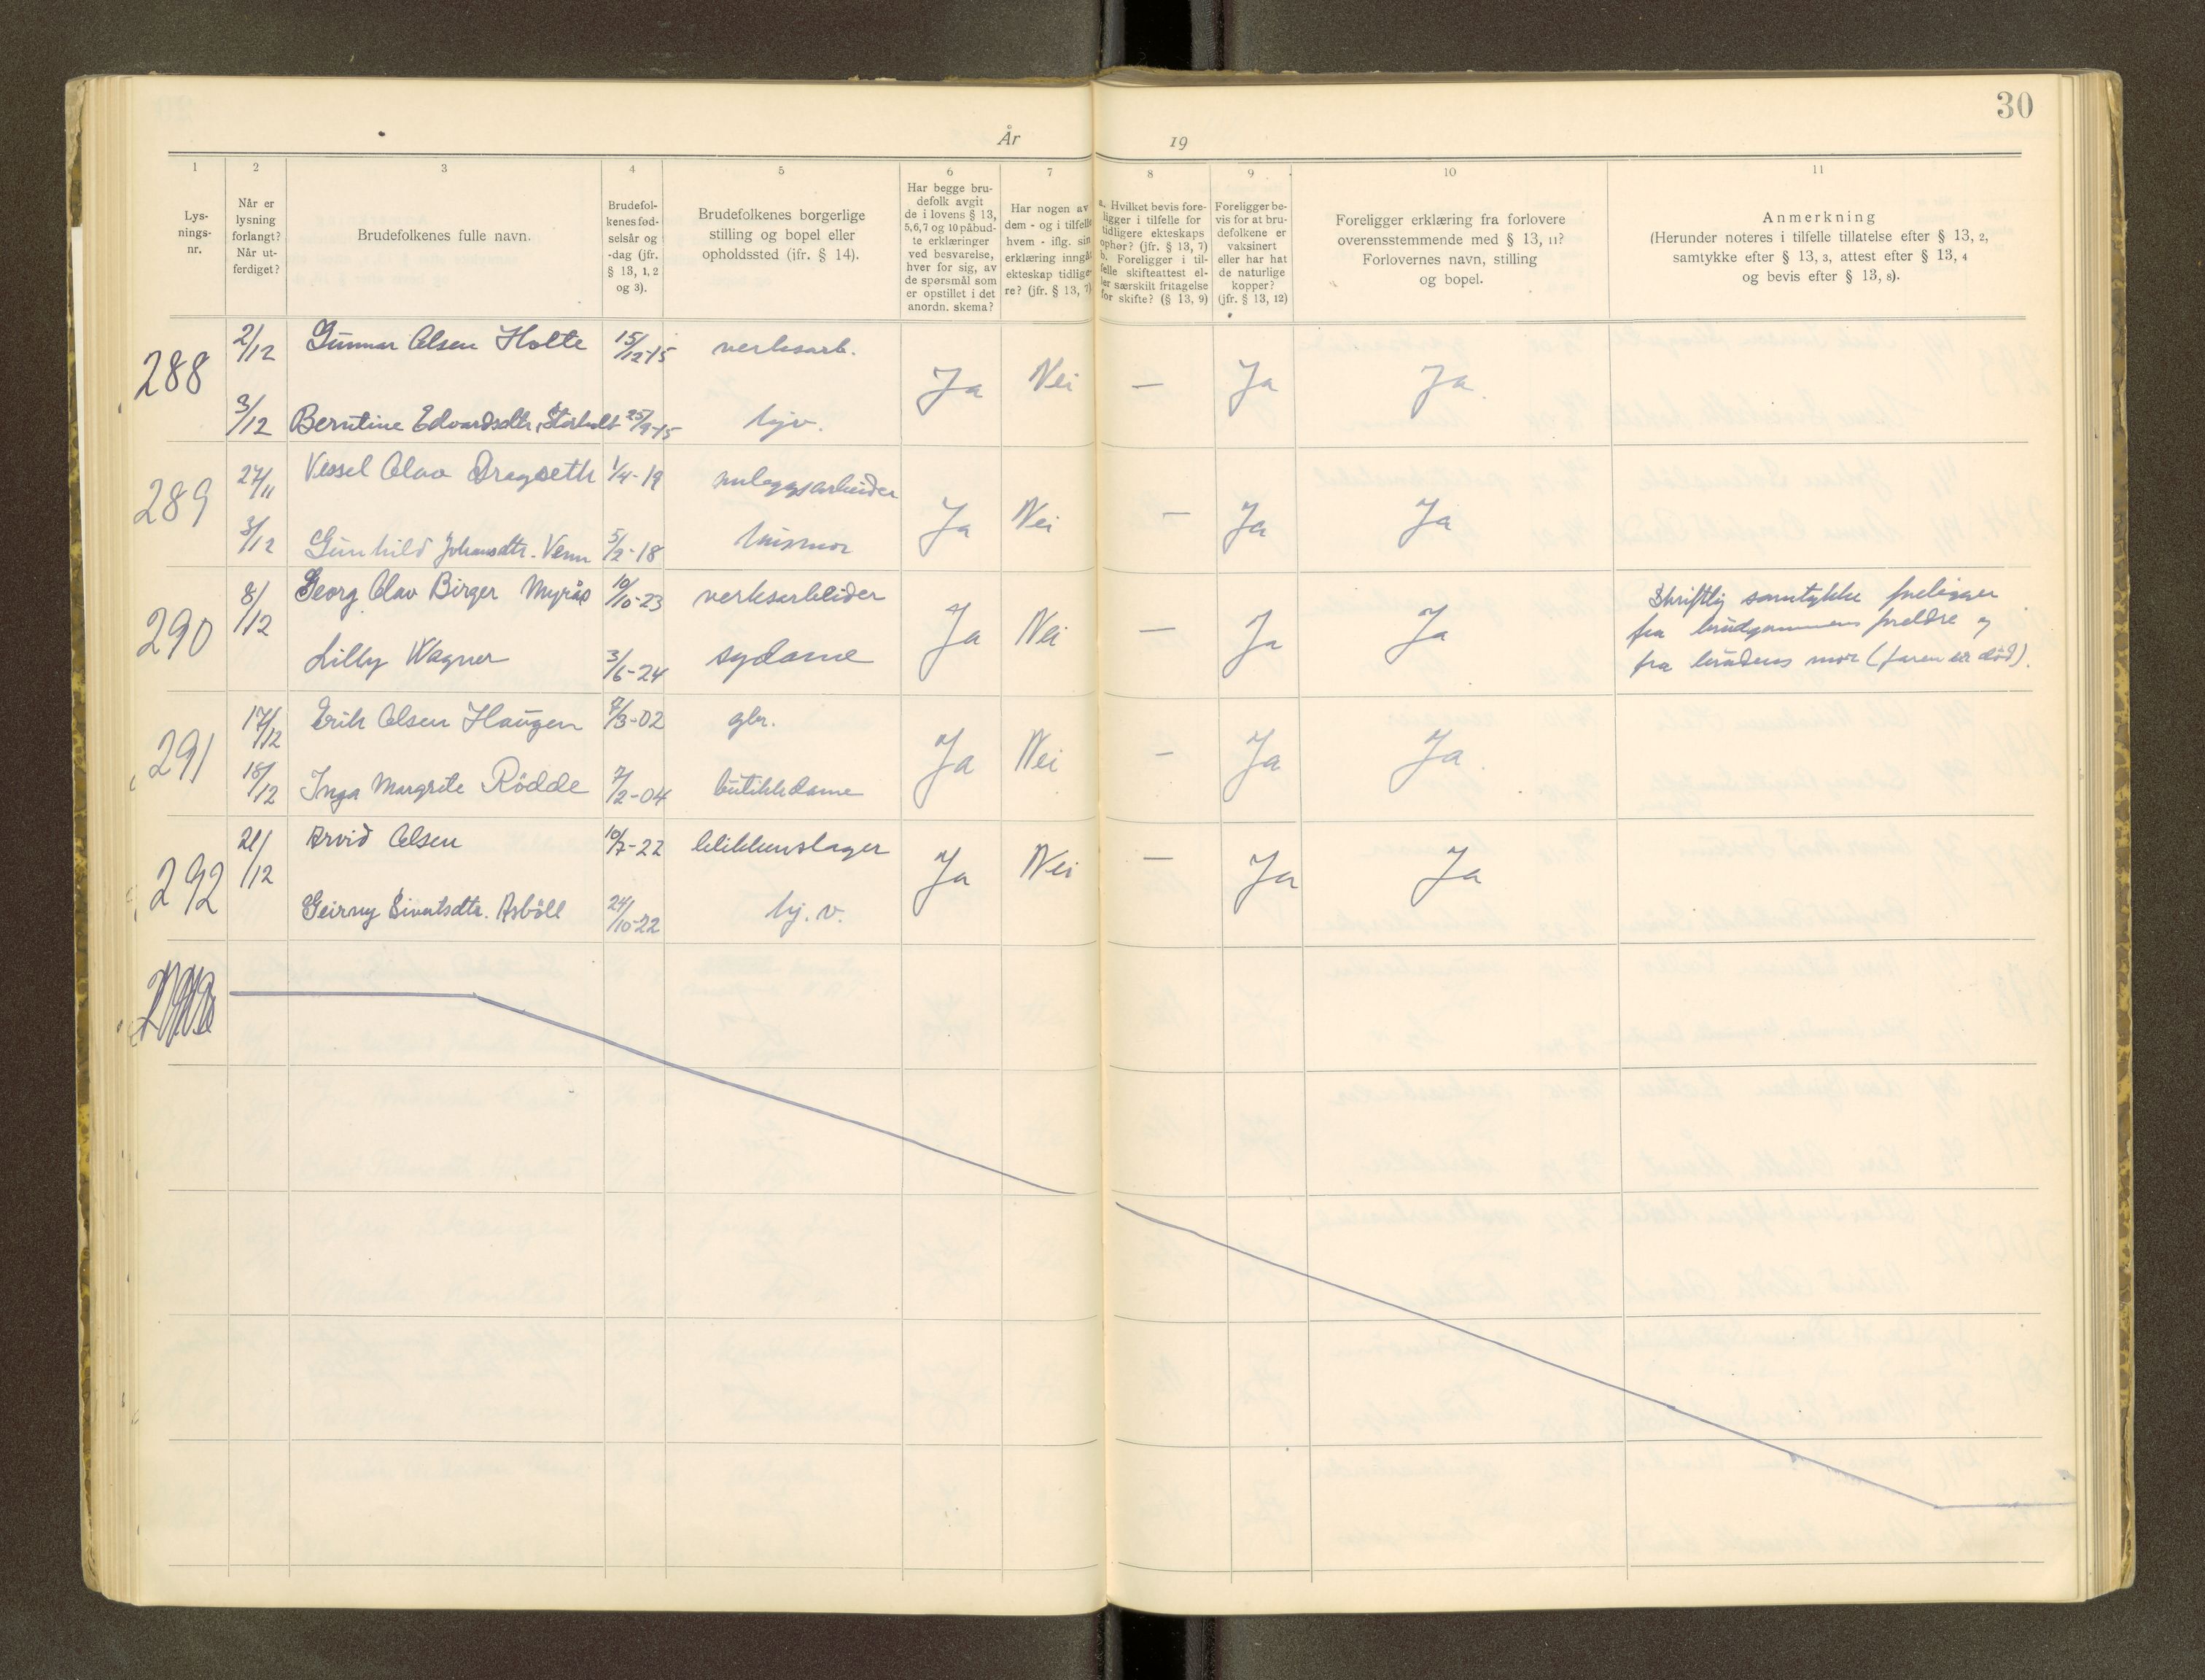 30
År 19
1 2 3 4 5 6 7 8 9 10 11
Lys-
nings-
nr.
Når er
lysning
forlangt?
Når ut-
ferdiget?
Brudefolkenes fulle navn.
Brudefol-
kenes fød-
selsår og
-dag (jfr.
§ 13, 1, 2
og 3).
Brudefolkenes borgerlige
stilling og bopel eller
opholdssted (ifr. § 14).
Har begge bru-
defolk avgit
de i lovens § 13,
5,6,7 og 10 påbud-
te erklæringer
ved besvarelse,
hver for sig, av
de spørsmål som
er opstillet i det
anordn. skema?
Har nogen av
dem - og i tilfelle
hvem - iflg. sin
erklæring inngåt
ekteskap tidlige-
re? (jfr. § 13, 7)
a. Hvilket bevis fore-
ligger i tilfelle for
tidligere ekteskaps
ophør? (jfr. § 13, 7)
b. Foreligger i til-
felle skifteattest el-
ler særskilt fritagelse
for skifte? (§ 13, 9)
Foreligger be-
vis for at bru-
defolkene er
vaksinert
eller har hat
de naturlige
kopper?
(jfr. § 13, 12)
Foreligger erklæring fra forlovere
overensstemmende med § 13, 11?
Forlovernes navn, stilling
og bopel.
Anmerkning
(Herunder noteres i tilfelle tillatelse efter § 13, 2,
samtykke efter § 13, 3, attest efter § 13, 4
og bevis efter § 13, 8).
288 2/12 Gunnar Olsen Holte 15/12-15 verksarb. Ja Nei — Ja Ja
3/12 Berntine Edvardsdtr. Storholt 25/9-15 hjv.
289 27/11 Vessel Olav Dragseth 1/4-19 anleggsarbeider Ja Nei — Ja Ja
3/12 Gunhild Johansdtr. Venn 5/2-18 husmor
290 8/12 Georg Olav Birger Myrås 10/10-23 verksarbeider Ja Nei — Ja Ja
Lilly Wagner 3/6-24 sydame
Skriftlig samtykke foreligger
fra brudgommens foreldre og
fra brudens mor (faren er død).
291 17/12 Erik Olsen Haugen 7/3-02 gbr. Ja Nei — Ja Ja
18/12 Inga Margrete Rödde 7/2-04 butikkdame
292 21/12 Arvid Olsen 10/7-22 blikkenslager Ja Nei — Ja Ja
Geirny Sivertsdtr. Asböll 24/10-22 hj. v.